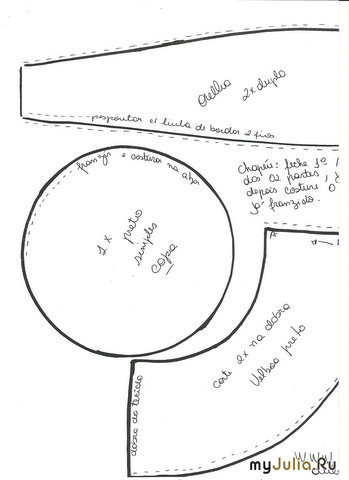 Orelha
2x duplo
pespontar c/ linha de bordar 2 fios
franzir e costurar na aba
1 x
preto
simples
copa
Chapéu: feche 1º A
das 02 partes,
depois costure o
já franzido.
A
corte 2x na dobra
Velboa preto
dobra do tecido
myJulia.Ru